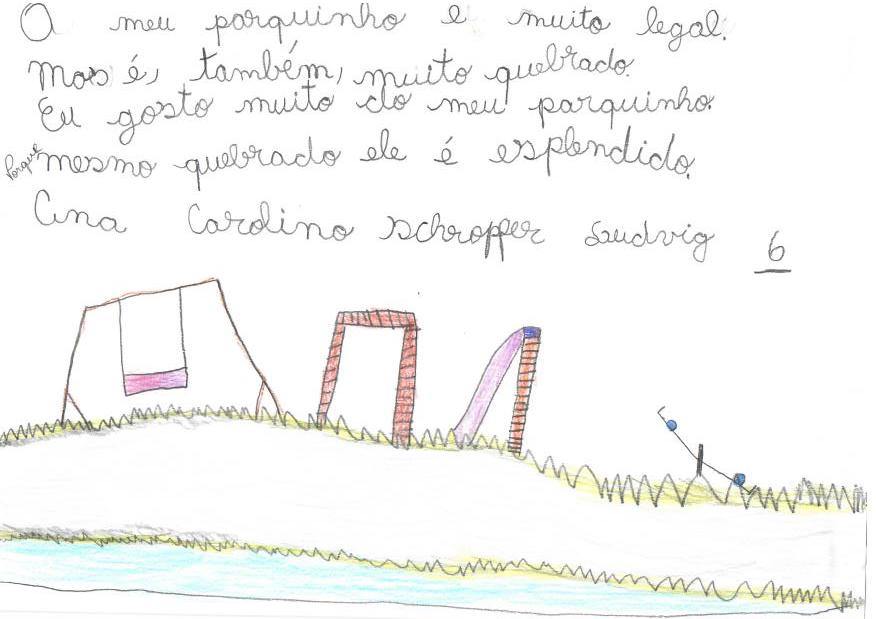 O meu parquinho e muito legal.
Mas é, também, muito quebrado.
Eu gosto muito do meu parquinho.
Porque mesmo quebrado ele é esplendido.
Ana Carolina Schropfer Ludvig 6